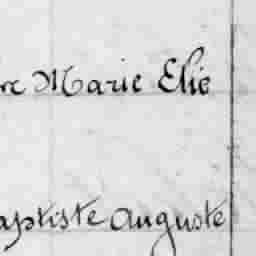 re Marie Elie
aptiste Auguste